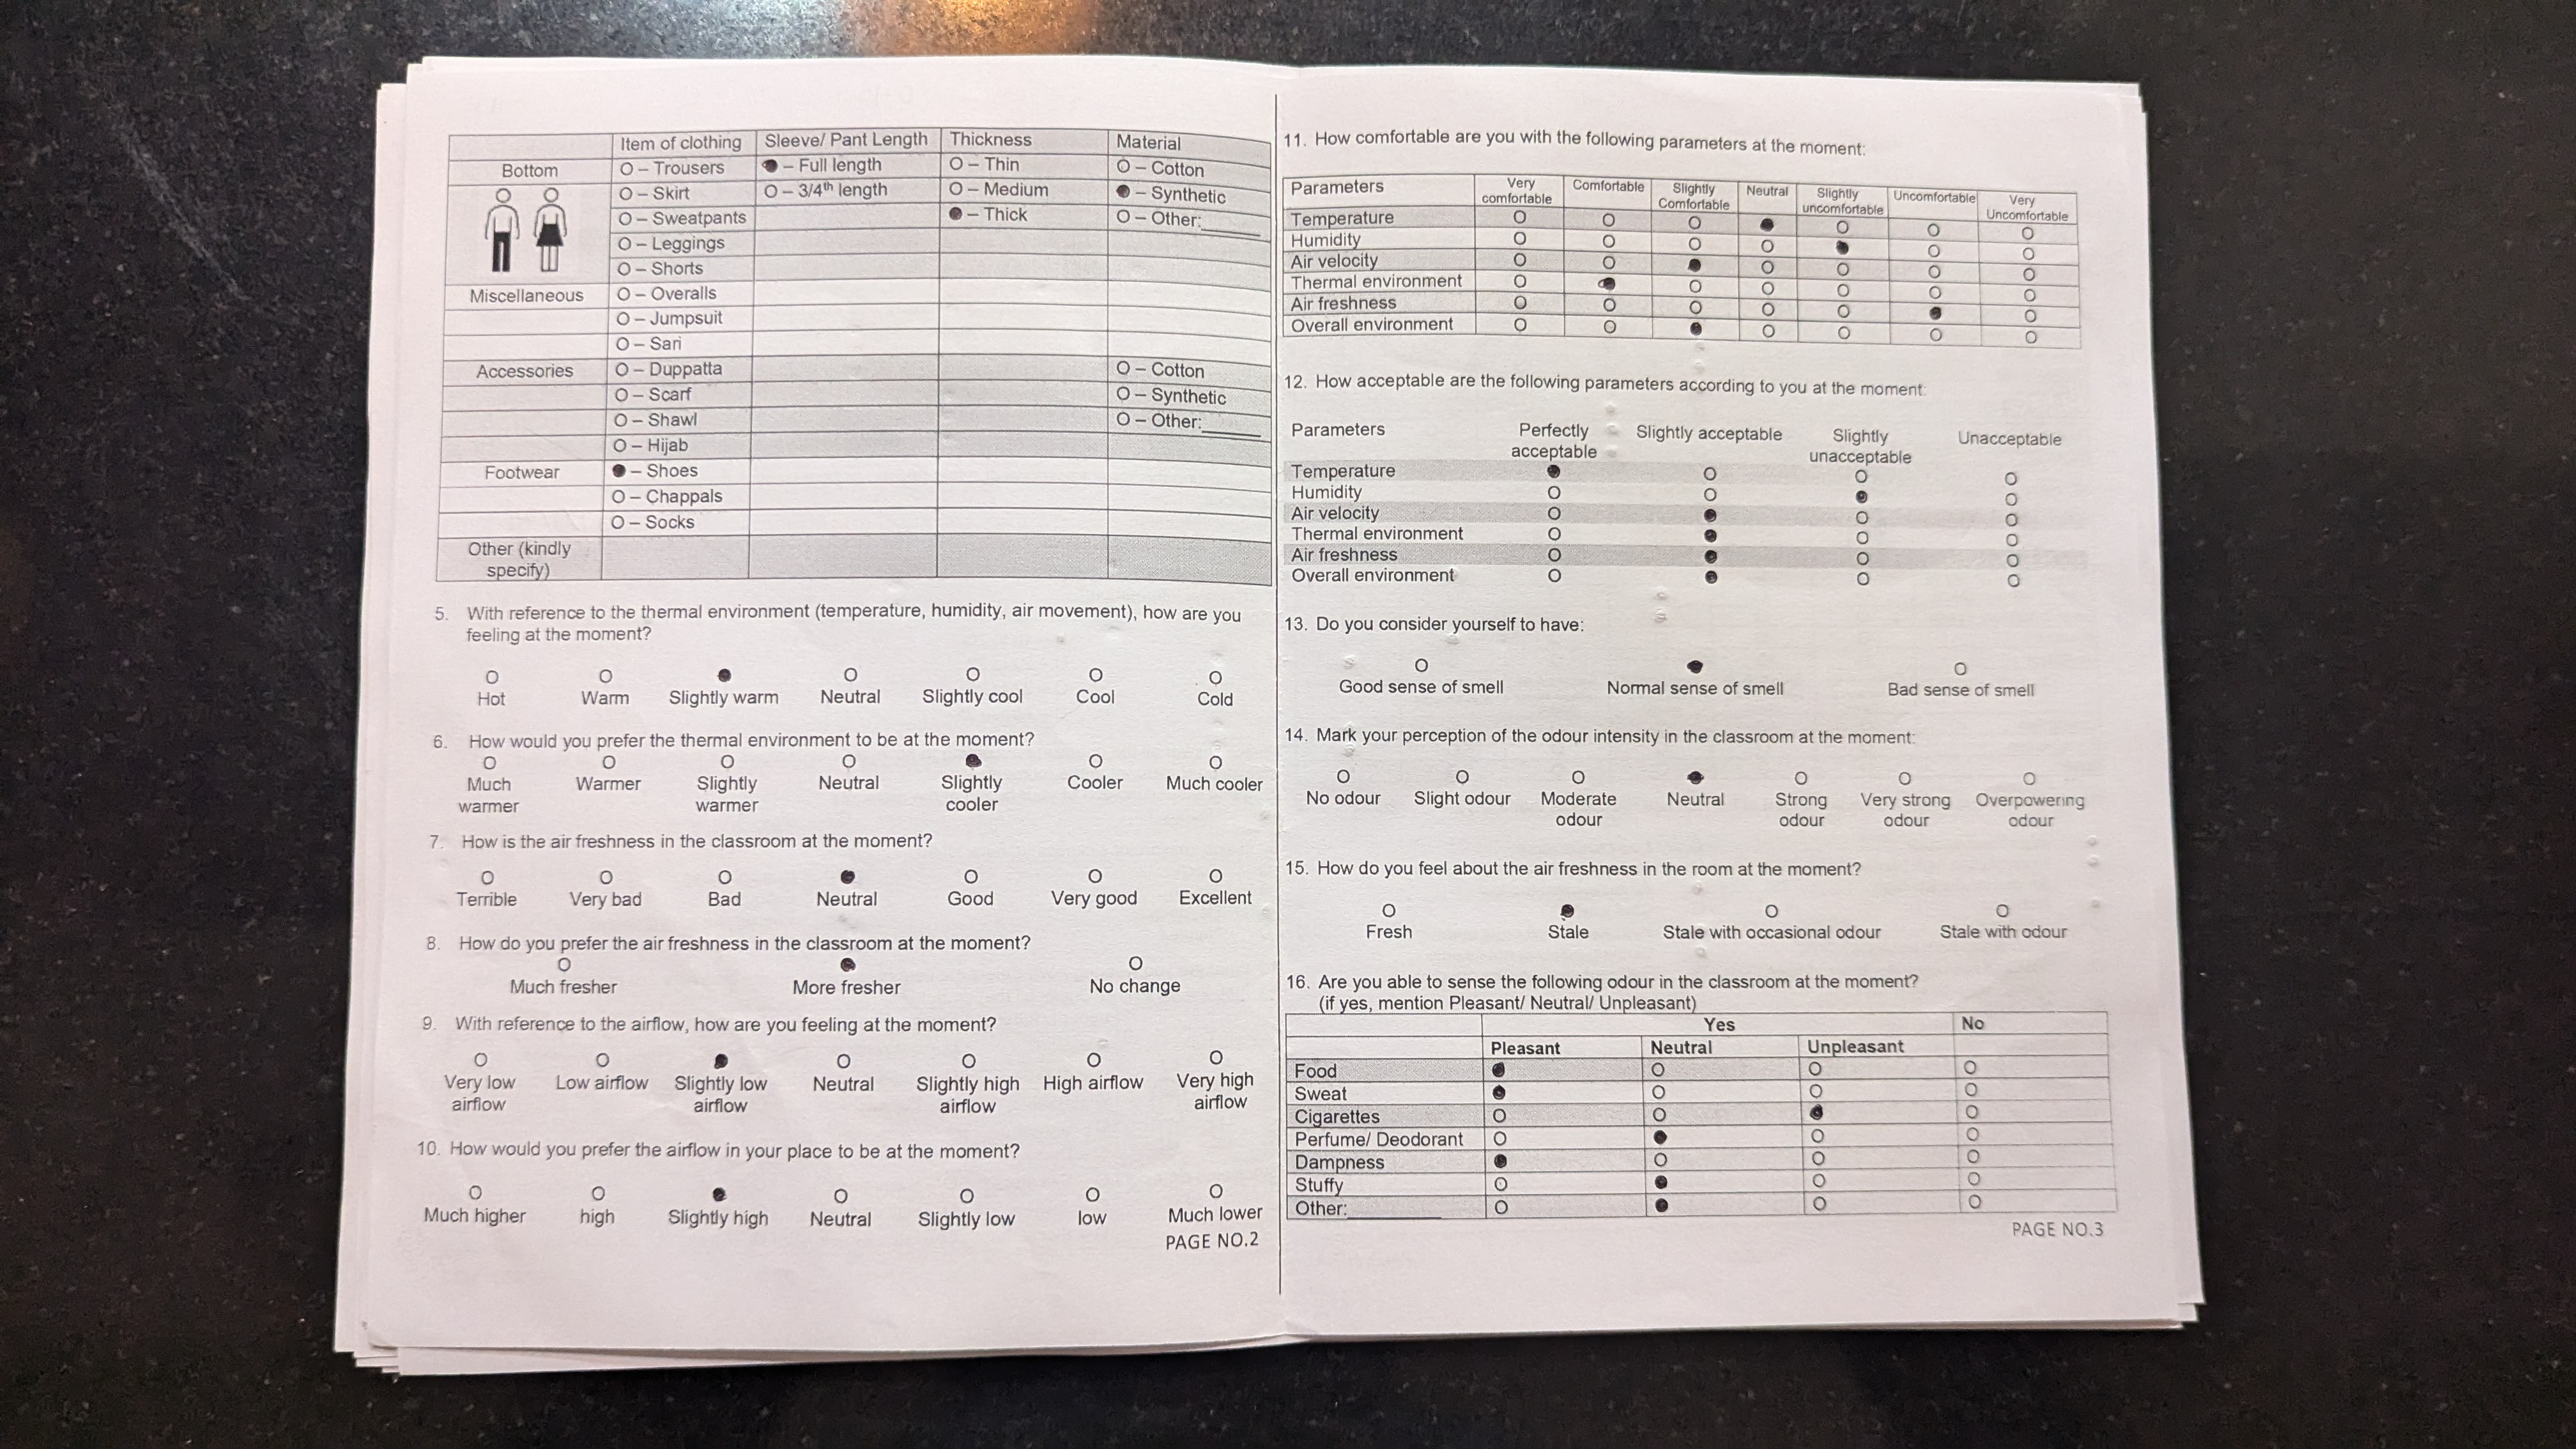 Item of clothing Sleeve/ Pant Length Thickness Material
Bottom O – Trousers ● – Full length O – Thin O – Cotton
O – Skirt O – 3/4th length O – Medium ● – Synthetic
O – Sweatpants ● – Thick O – Other:______
O – Leggings
O – Shorts
Miscellaneous O – Overalls
O – Jumpsuit
O – Sari
Accessories O – Duppatta O – Cotton
O – Scarf O – Synthetic
O – Shawl O – Other:______
O – Hijab
Footwear ● – Shoes
O – Chappals
O – Socks
Other (kindly
specify)
5. With reference to the thermal environment (temperature, humidity, air movement), how are you
feeling at the moment?
O O ● O O O O
Hot Warm Slightly warm Neutral Slightly cool Cool Cold
6. How would you prefer the thermal environment to be at the moment?
O O O O ● O O
Much Warmer Slightly Neutral Slightly Cooler Much cooler
warmer warmer cooler
7. How is the air freshness in the classroom at the moment?
O O O ● O O O
Terrible Very bad Bad Neutral Good Very good Excellent
8. How do you prefer the air freshness in the classroom at the moment?
O ● O
Much fresher More fresher No change
9. With reference to the airflow, how are you feeling at the moment?
O O ● O O O O
Very low Low airflow Slightly low Neutral Slightly high High airflow Very high
airflow airflow airflow airflow
10. How would you prefer the airflow in your place to be at the moment?
O O ● O O O O
Much higher high Slightly high Neutral Slightly low low Much lower
PAGE NO.2
11. How comfortable are you with the following parameters at the moment:
Parameters Very Comfortable Slightly Neutral Slightly Uncomfortable Very
comfortable Comfortable uncomfortable Uncomfortable
Temperature O O O ● O O O
Humidity O O O O ● O O
Air velocity O O ● O O O O
Thermal environment O ● O O O O O
Air freshness O O O O O ● O
Overall environment O O ● O O O O
12. How acceptable are the following parameters according to you at the moment:
Parameters Perfectly Slightly acceptable Slightly Unacceptable
acceptable unacceptable
Temperature ● O O O
Humidity O O ● O
Air velocity O ● O O
Thermal environment O ● O O
Air freshness O ● O O
Overall environment O ● O O
13. Do you consider yourself to have:
O ● O
Good sense of smell Normal sense of smell Bad sense of smell
14. Mark your perception of the odour intensity in the classroom at the moment:
O O O ● O O O
No odour Slight odour Moderate Neutral Strong Very strong Overpowering
odour odour odour odour
15. How do you feel about the air freshness in the room at the moment?
O ● O O
Fresh Stale Stale with occasional odour Stale with odour
16. Are you able to sense the following odour in the classroom at the moment?
(if yes, mention Pleasant/ Neutral/ Unpleasant)
Yes No
Pleasant Neutral Unpleasant
Food ● O O O
Sweat ● O O O
Cigarettes O O ● O
Perfume/ Deodorant O ● O O
Dampness ● O O O
Stuffy O ● O O
Other:_________ O ● O O
PAGE NO.3